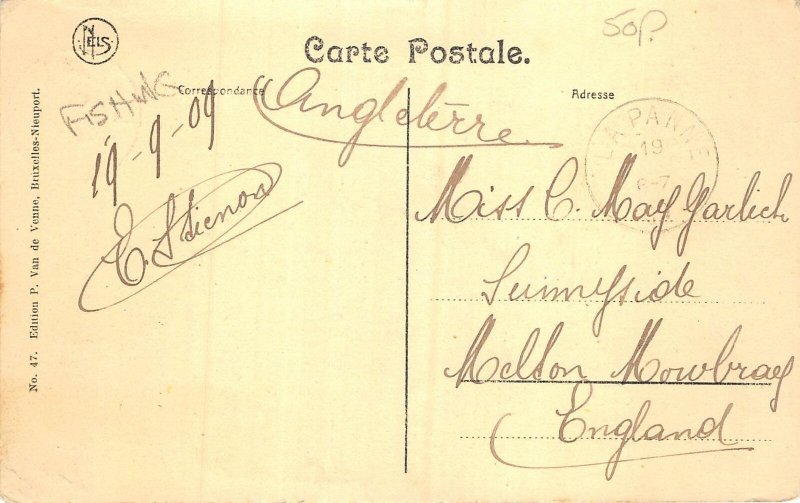 NELS
50p.
Carte Postale.
Correspondance
Adresse
FISHING
Angleterre
19-9-09
LA PANNE
19
6-7
Miss C. May Garlich
Sunnyside
Melton Mowbray
England
No. 47. Edition P. Van de Venne, Bruxelles-Nieuport.